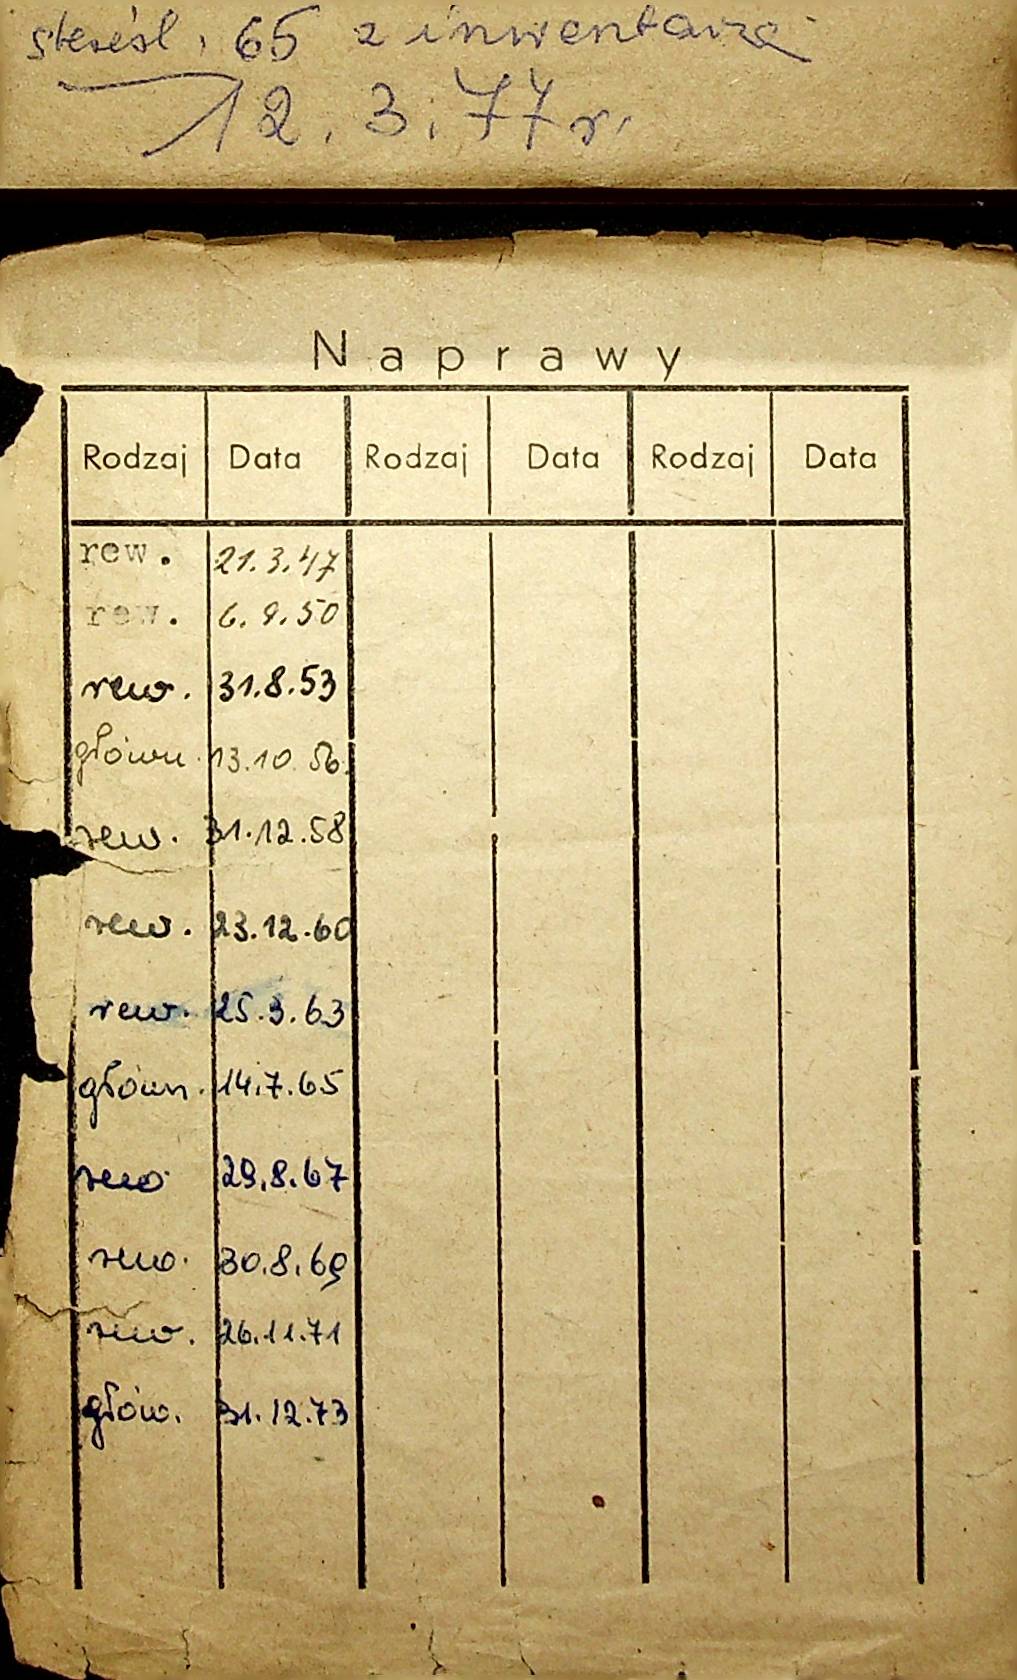 skreśl. 65 z inwentarza
12.3.77r.
Naprawy
Rodzaj Data Rodzaj Data Rodzaj Data
rew. 21.3.47
rew. 6.9.50
rew. 31.8.53
główn. 13.10.56.
rew. 31.12.58
rew. 23.12.60
rew. 25.3.63
główn. 14.7.65
rew. 29.8.67
rew. 30.8.69
rew. 26.11.71
głów. 31.12.73